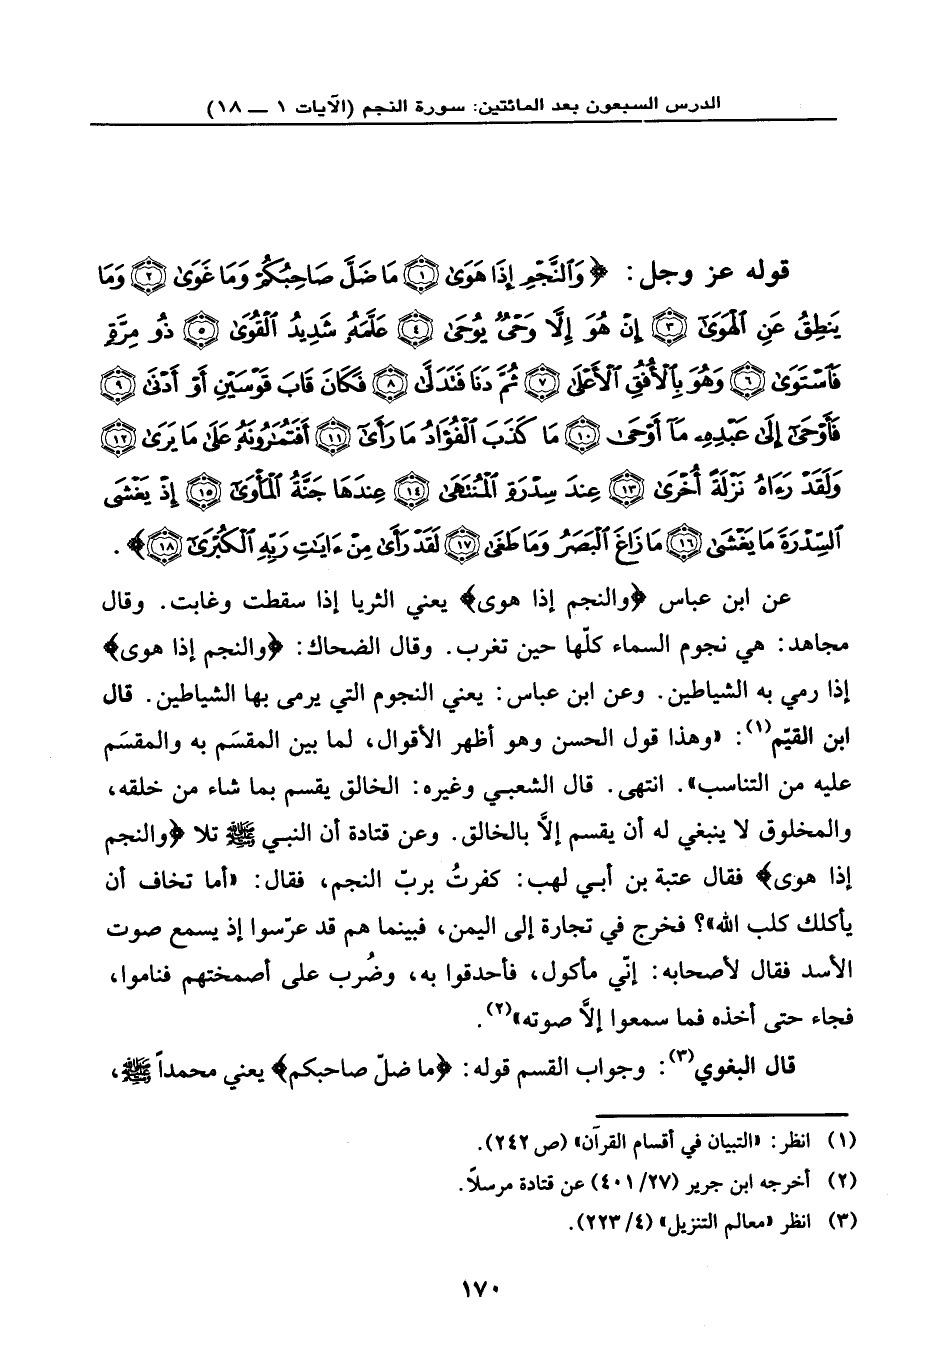 الدرس السبعون بعد المائتين: سورة النجم (الآيات ١ ــ ١٨)
قوله عز وجل: ﴿وَٱلنَّجْمِ إِذَا هَوَىٰ ۝١ مَا ضَلَّ صَاحِبُكُمْ وَمَا غَوَىٰ ۝٢ وَمَا
يَنطِقُ عَنِ ٱلْهَوَىٰٓ ۝٣ إِنْ هُوَ إِلَّا وَحْىٌ يُوحَىٰ ۝٤ عَلَّمَهُۥ شَدِيدُ ٱلْقُوَىٰ ۝٥ ذُو مِرَّةٍ
فَٱسْتَوَىٰ ۝٦ وَهُوَ بِٱلْأُفُقِ ٱلْأَعْلَىٰ ۝٧ ثُمَّ دَنَا فَتَدَلَّىٰ ۝٨ فَكَانَ قَابَ قَوْسَيْنِ أَوْ أَدْنَىٰ ۝٩
فَأَوْحَىٰٓ إِلَىٰ عَبْدِهِۦ مَآ أَوْحَىٰ ۝١٠ مَا كَذَبَ ٱلْفُؤَادُ مَا رَأَىٰٓ ۝١١ أَفَتُمَٰرُونَهُۥ عَلَىٰ مَا يَرَىٰ ۝١٢
وَلَقَدْ رَءَاهُ نَزْلَةً أُخْرَىٰ ۝١٣ عِندَ سِدْرَةِ ٱلْمُنتَهَىٰ ۝١٤ عِندَهَا جَنَّةُ ٱلْمَأْوَىٰٓ ۝١٥ إِذْ يَغْشَى
ٱلسِّدْرَةَ مَا يَغْشَىٰ ۝١٦ مَا زَاغَ ٱلْبَصَرُ وَمَا طَغَىٰ ۝١٧ لَقَدْ رَأَىٰ مِنْ ءَايَٰتِ رَبِّهِ ٱلْكُبْرَىٰٓ ۝١٨﴾.
عن ابن عباس ﴿والنجم إذا هوى﴾ يعني الثريا إذا سقطت وغابت. وقال
مجاهد: هي نجوم السماء كلّها حين تغرب. وقال الضحاك: ﴿والنجم إذا هوى﴾
إذا رمي به الشياطين. وعن ابن عباس: يعني النجوم التي يرمى بها الشياطين. قال
ابن القيّم(١): «وهذا قول الحسن وهو أظهر الأقوال، لما بين المقسَم به والمقسَم
عليه من التناسب». انتهى. قال الشعبي وغيره: الخالق يقسم بما شاء من خلقه،
والمخلوق لا ينبغي له أن يقسم إلاَّ بالخالق. وعن قتادة أن النبي ﷺ تلا ﴿والنجم
إذا هوى﴾ فقال عتبة بن أبي لهب: كفرتُ بربّ النجم، فقال: «أما تخاف أن
يأكلك كلب الله»؟ فخرج في تجارة إلى اليمن، فبينما هم قد عرّسوا إذ يسمع صوت
الأسد فقال لأصحابه: إنّي مأكول، فأحدقوا به، وضُرب على أصمختهم فناموا،
فجاء حتى أخذه فما سمعوا إلاَّ صوته»(٢).
قال البغوي(٣): وجواب القسم قوله: ﴿ما ضلّ صاحبكم﴾ يعني محمداً ﷺ،
(١) انظر: «التبيان في أقسام القرآن» (ص ٢٤٢).
(٢) أخرجه ابن جرير (٤٠١/٢٧) عن قتادة مرسلاً.
(٣) انظر «معالم التنزيل» (٢٢٣/٤).
١٧٠